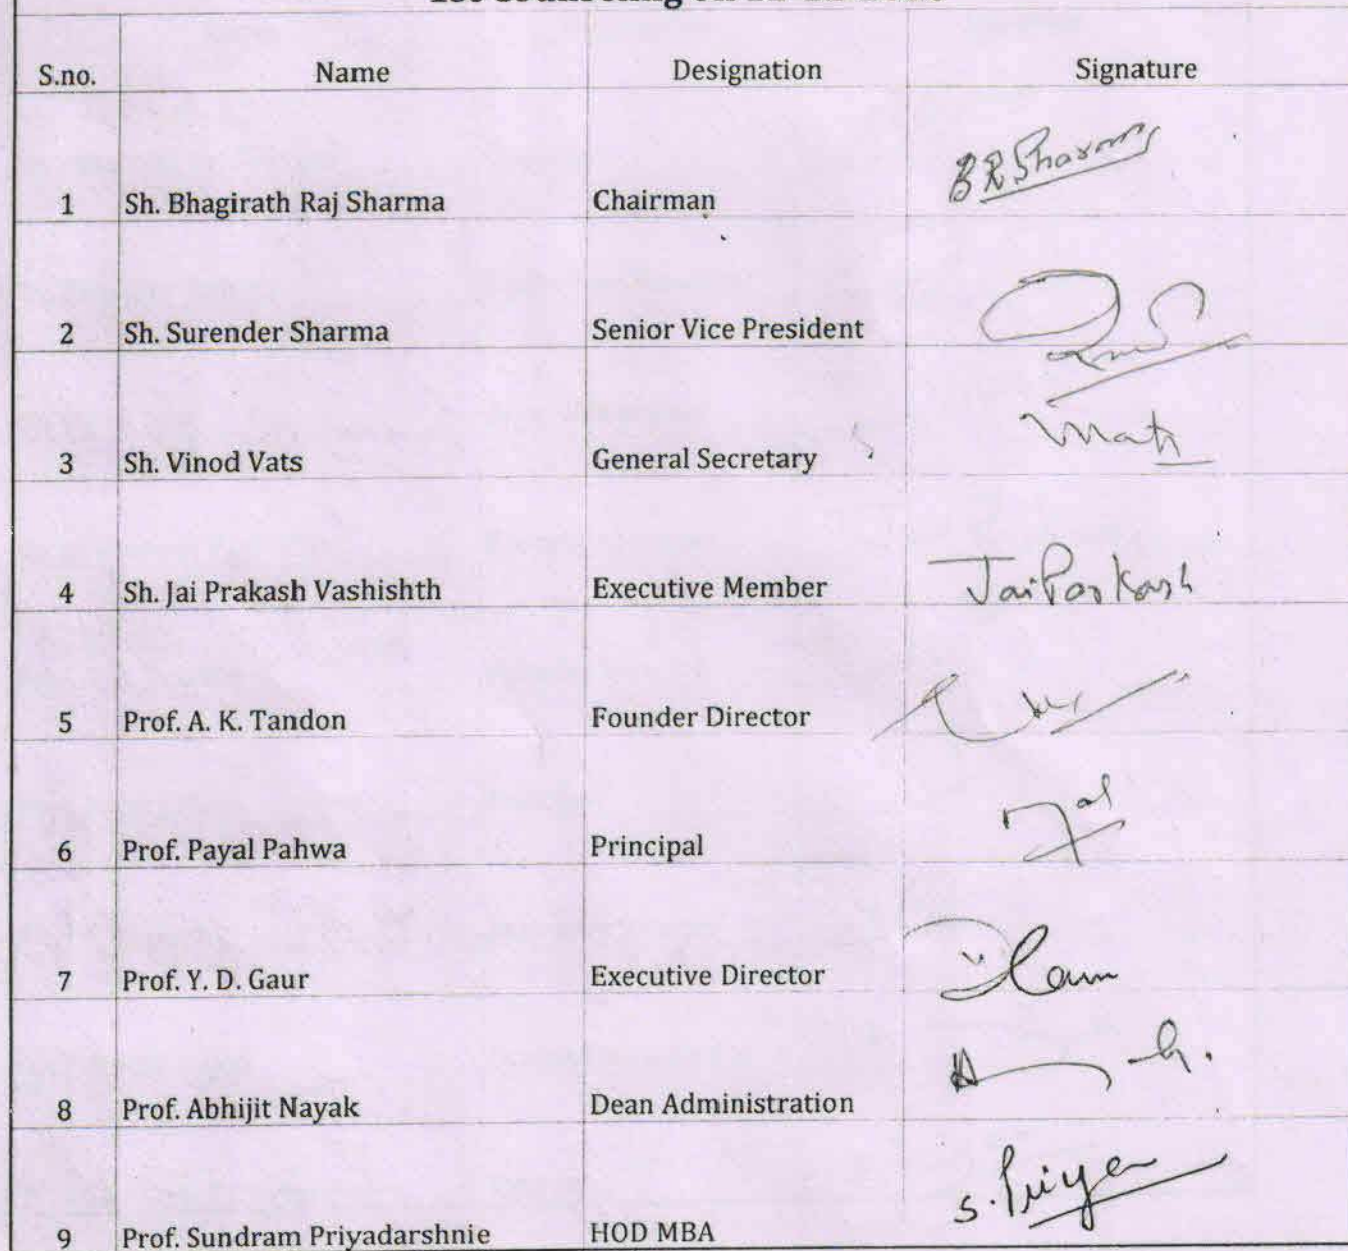 S.no. Name Designation Signature
1 Sh. Bhagirath Raj Sharma Chairman B R Sharma
2 Sh. Surender Sharma Senior Vice President
3 Sh. Vinod Vats General Secretary
4 Sh. Jai Prakash Vashishth Executive Member Jai Parkash
5 Prof. A. K. Tandon Founder Director
6 Prof. Payal Pahwa Principal
7 Prof. Y. D. Gaur Executive Director
8 Prof. Abhijit Nayak Dean Administration
9 Prof. Sundram Priyadarshnie HOD MBA S. Priya